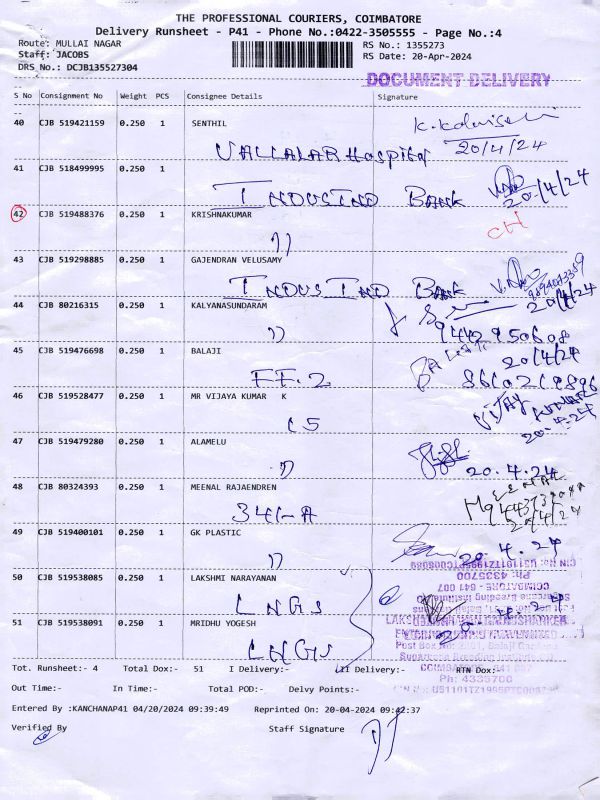 THE PROFESSIONAL COURIERS, COIMBATORE
Delivery Runsheet - P41 - Phone No.:0422-3505555 - Page No.:4
Route: MULLAI NAGAR RS No.: 1355273
Staff: JACOBS RS Date: 20-Apr-2024
DRS_No.: DCJB135527304
DOCUMENT DELIVERY
S No Consignment No Weight PCS Consignee Details Signature
40 CJB 519421159 0.250 1 SENTHIL
20/4/24
VALLALAR Hospital
41 CJB 518499995 0.250 1
INDUSIND BANK 20/4/24
42 CJB 519488376 0.250 1 KRISHNAKUMAR CH
))
43 CJB 519298885 0.250 1 GAJENDRAN VELUSAMY
INDUSIND BANK 20/4/24
44 CJB 80216315 0.250 1 KALYANASUNDARAM
)) 9442950608
45 CJB 519476698 0.250 1 BALAJI 20/4/24
FF.2
46 CJB 519528477 0.250 1 MR VIJAYA KUMAR K VIJAY KUMAR
C5 20.4.24
47 CJB 519479280 0.250 1 ALAMELU
)) 20.4.24
48 CJB 80324393 0.250 1 MEENAL RAJAENDREN
20/4/24
49 CJB 519400101 0.250 1 GK PLASTIC
)) 20.4.24
50 CJB 519538085 0.250 1 LAKSHMI NARAYANAN
LNGS
51 CJB 519538091 0.250 1 MRIDHU YOGESH
LNGS
Tot. Runsheet:- 4 Total Dox:- 51 I Delivery:- III Delivery:- RTN Dox:
Ph: 4335700
Out Time:- In Time:- Total POD:- Delvy Points:-
Entered By :KANCHANAP41 04/20/2024 09:39:49 Reprinted On: 20-04-2024 09:42:37
Verified By Staff Signature